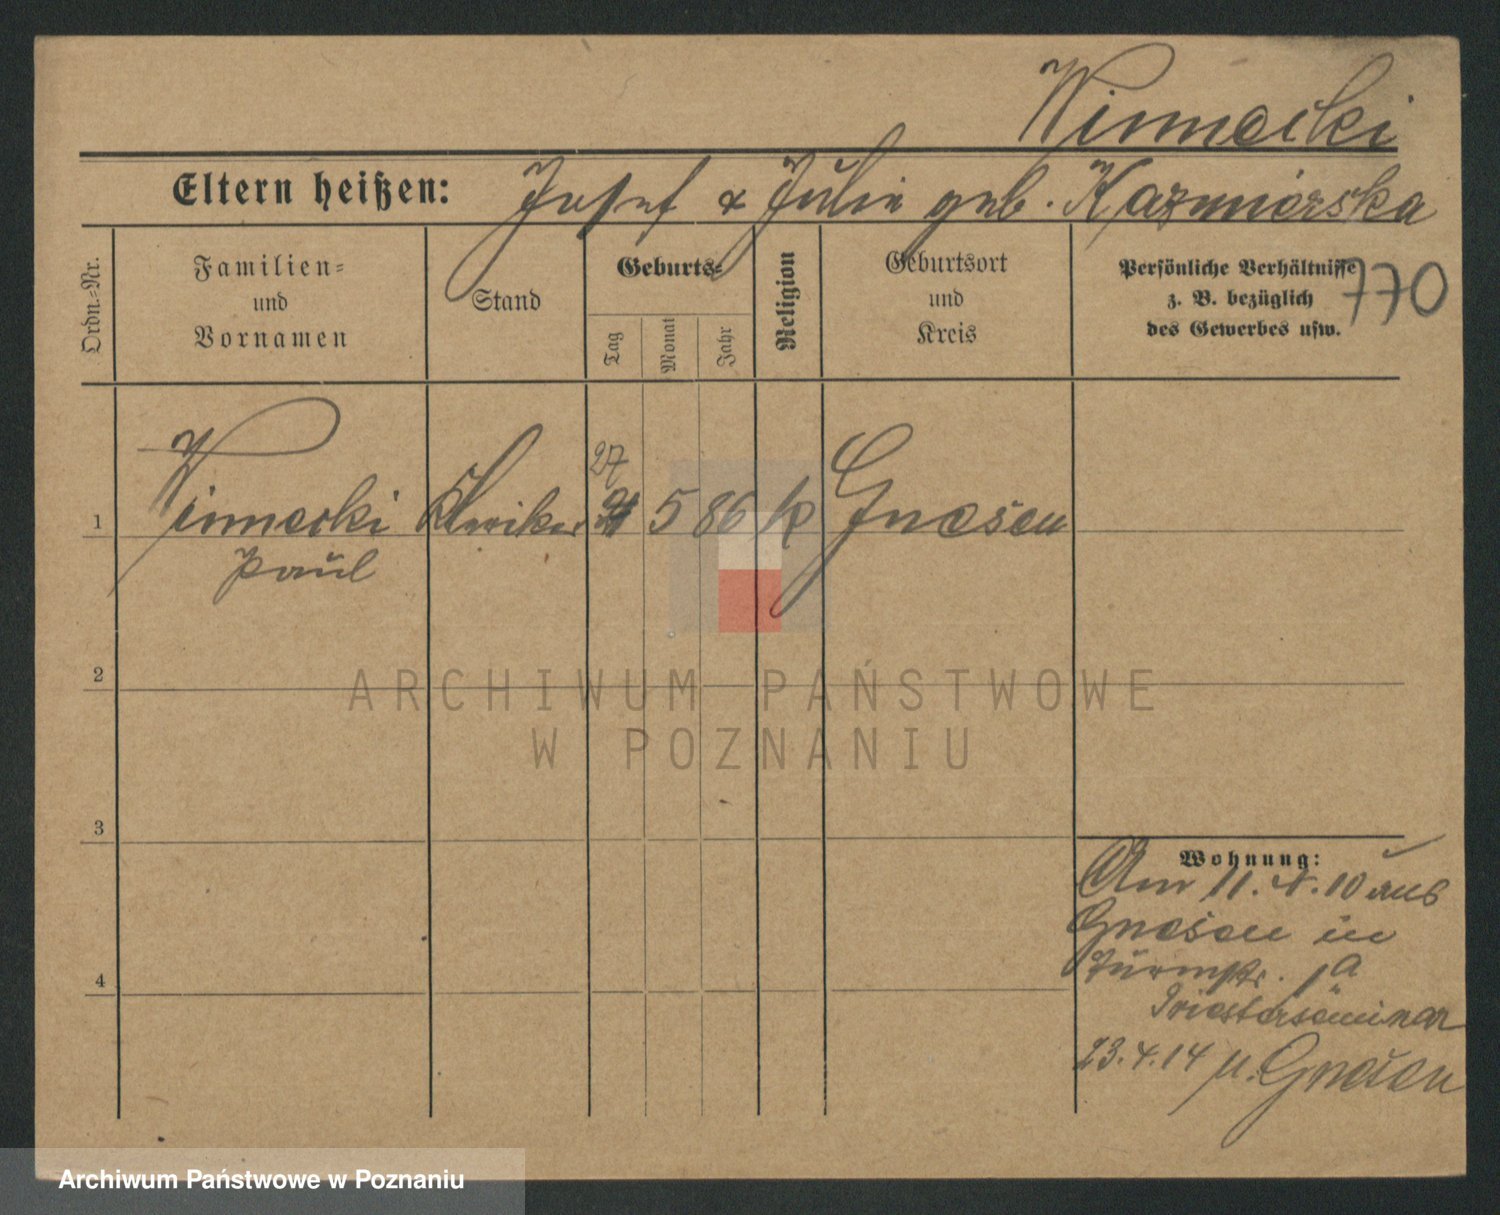 Winnecki
Eltern heißen: Josef & Julie geb. Kazmierska
Ordn.=Nr.
Familien=
und
Vornamen
Stand
Geburts=
Tag
Monat
Jahr
Religion
Geburtsort
und
Kreis
Persönliche Verhältnisse
z. B. bezüglich
des Gewerbes usw.
770
27
1 Winnecki Kleriker 5 86 k Gnesen
Paul
2
ARCHIWUM PAŃSTWOWE
W POZNANIU
3
Wohnung:
Am 11.4.10 aus
Gnesen in
Turmstr. 1a
Priesterseminar
4
23.4.14 n. Gnesen
Archiwum Państwowe w Poznaniu